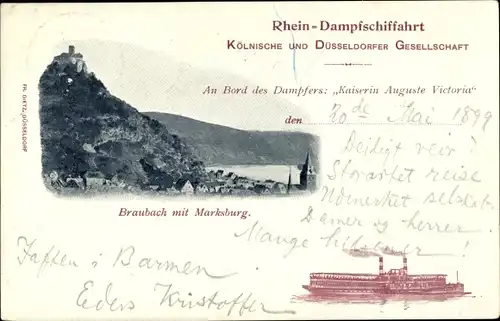 Rhein=Dampfschiffahrt
Kölnische und Düsseldorfer Gesellschaft
An Bord des Dampfers: „Kaiserin Auguste Victoria“
den 20de Mai 1899
FR. DIETZ, DÜSSELDORF
Braubach mit Marksburg.
Deiligt veir!
Storartet reise
Udmerket selskab
Damer og herrer
Mange hilsener!
i Barmen
Eders Kristoffer